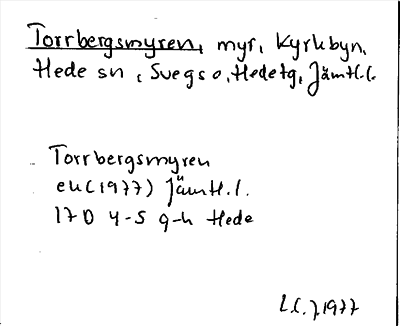 Torrbergsmyren, myr, Kyrkbyn,
Hede sn, Svegs o, Hede tg, Jämtl.l.
Torrbergsmyren
ek (1977) Jämtl.l.
17D 4-5 g-h Hede
1977